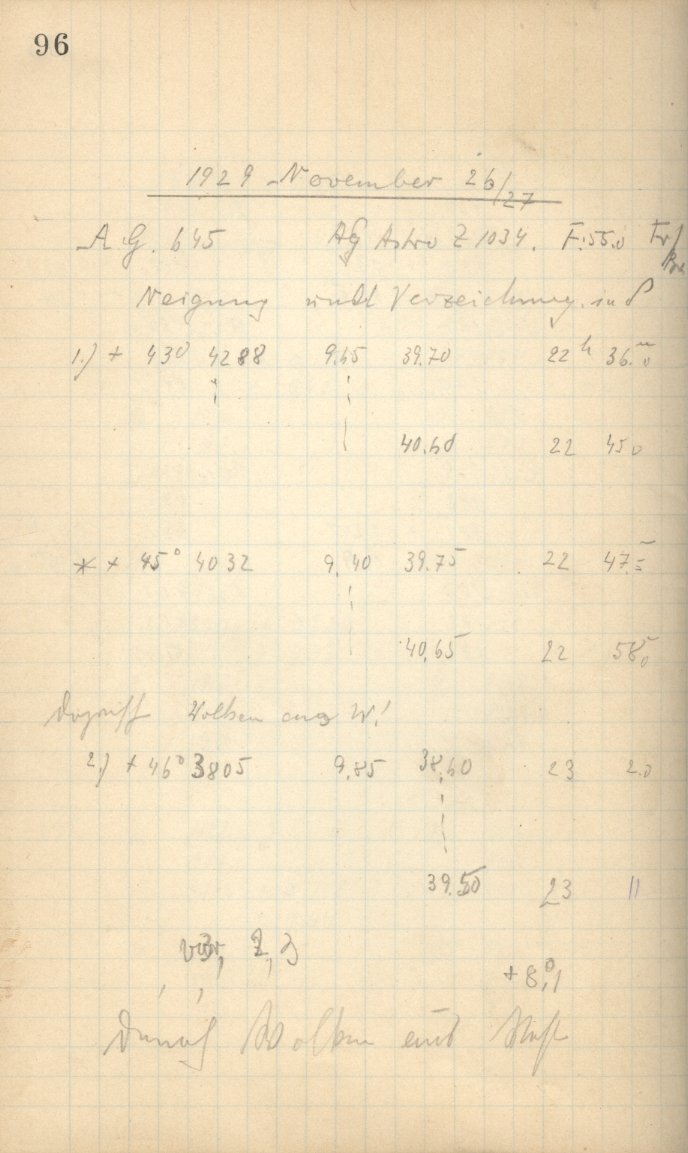 96
1929 November 26/27
A.G. 645 AG Astro Z 1034. F:55.0
Neigung und Verzeichnung in δ
1.) + 43° 4288 9.65 39.70 22h 36.m0
40.60 22 45.0
* + 45° 4032 9.40 39.75 22 47.5
40.65 22 58.0
Wolken aus W!
2.) + 46° 3805 9.85 38.60 23 2.0
39.50 23 11
2, 3
+8°,1
Wolken